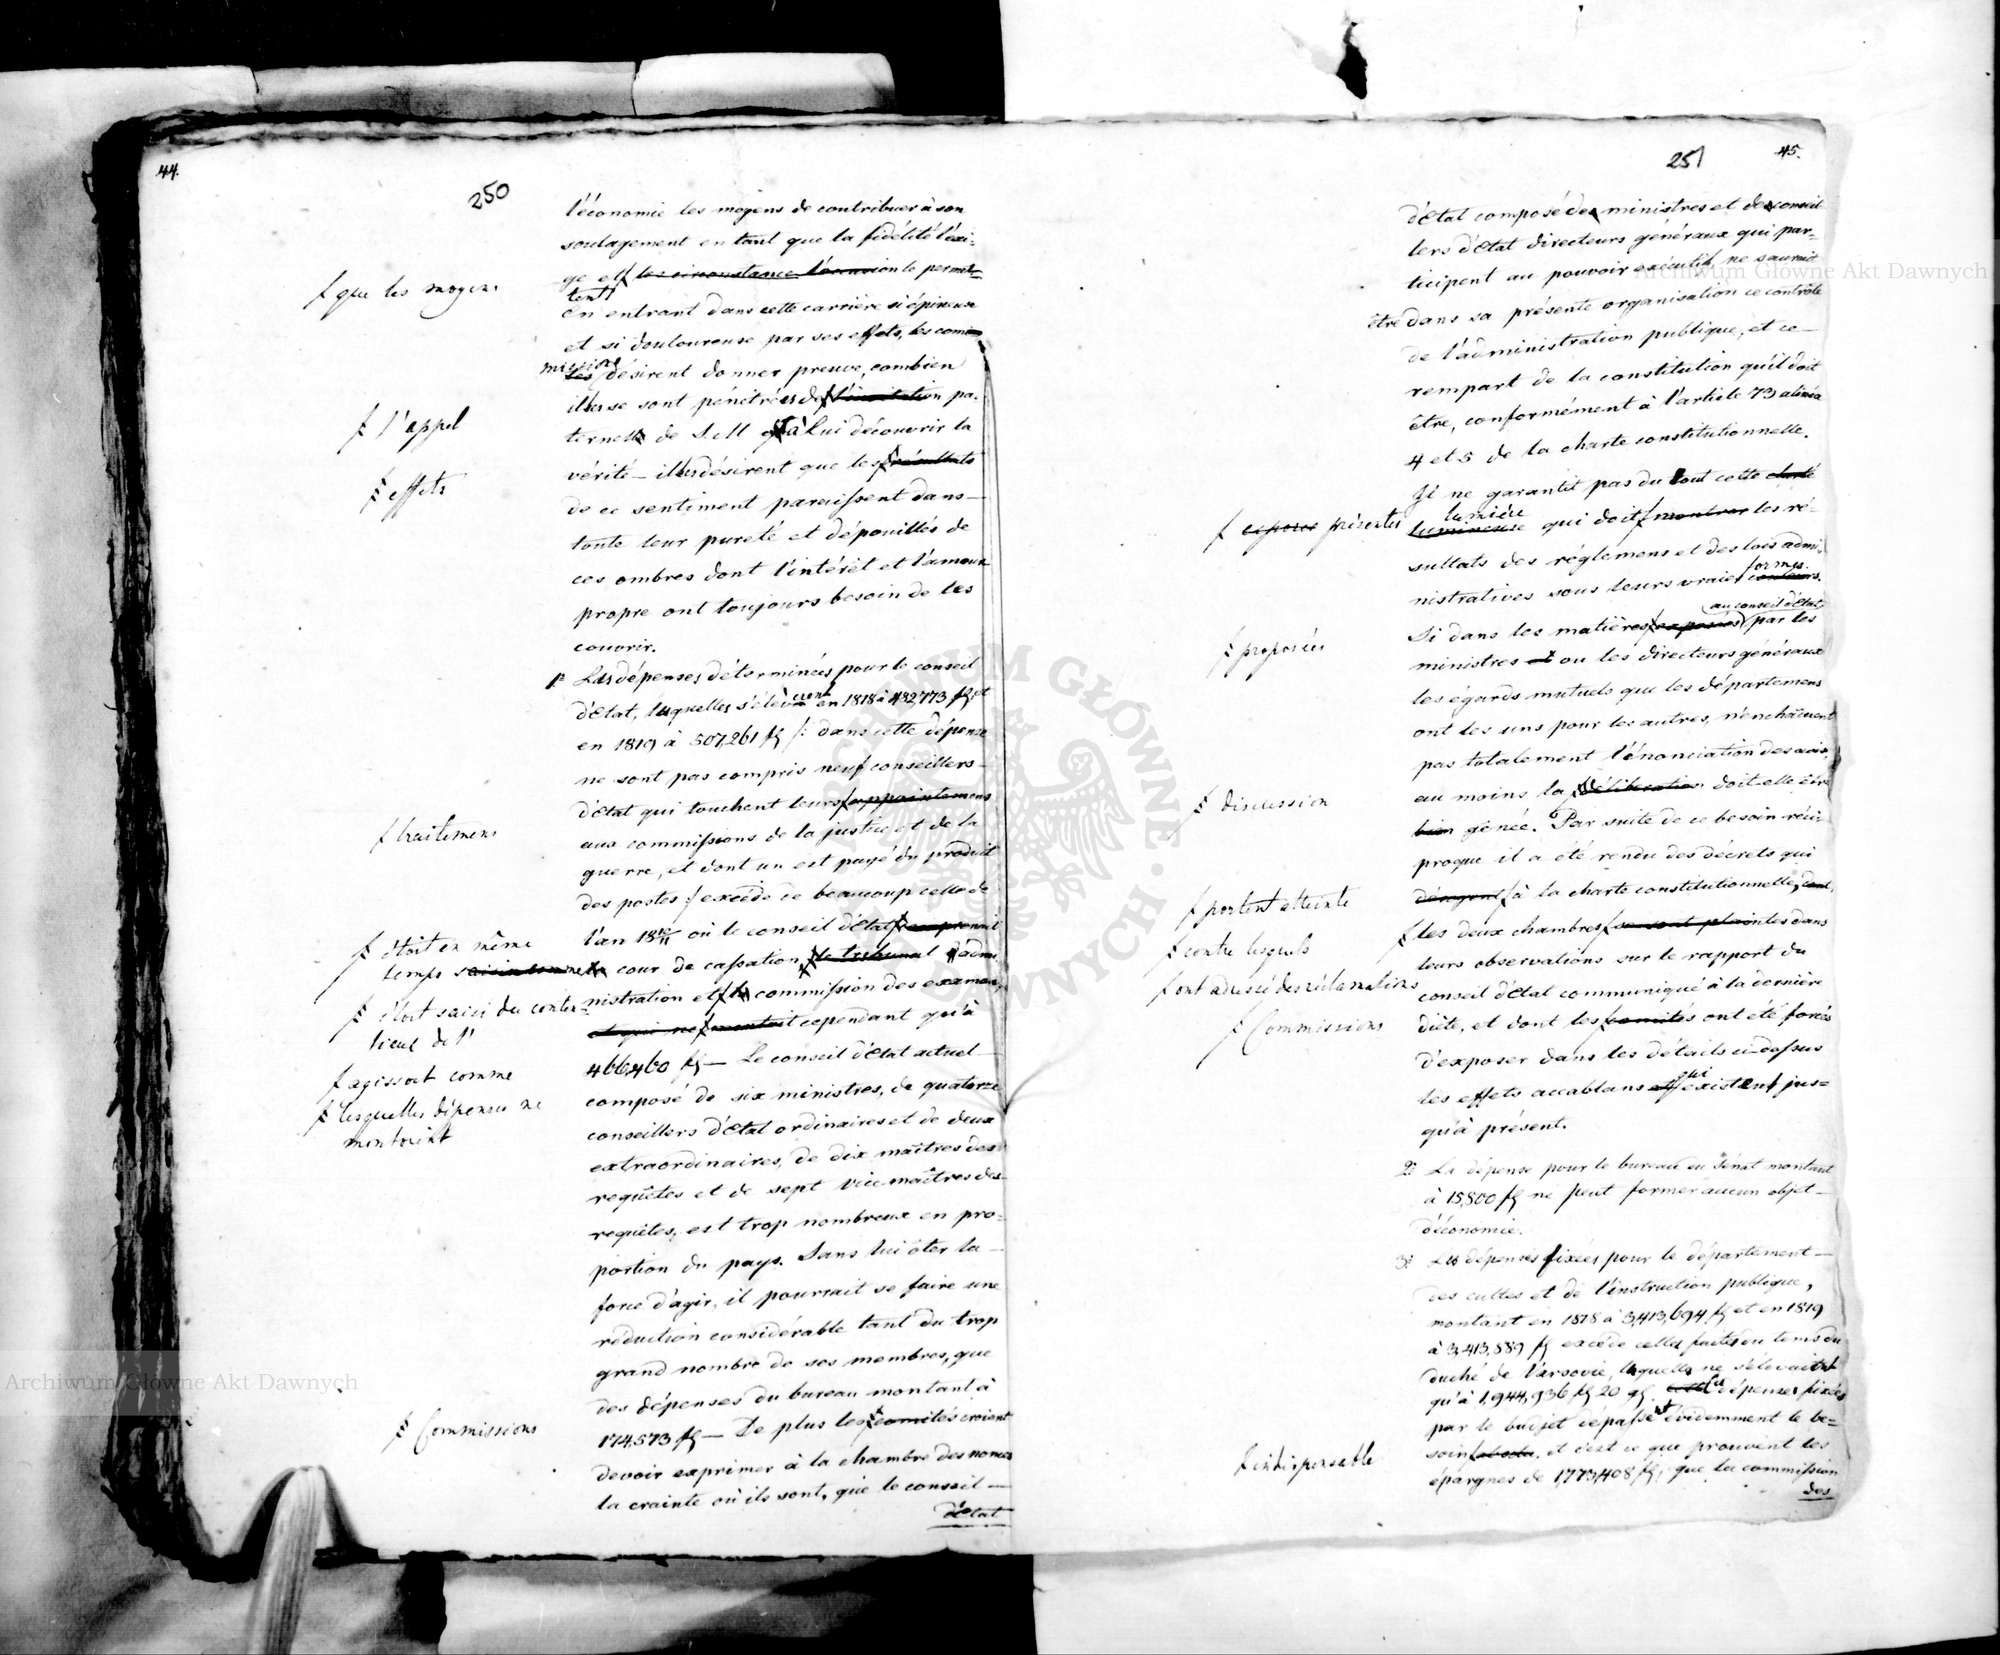 44.
250
l'économie les moyens de contribuer à son
soulagement en tant que la fidélité l'exi-
ge et ſ les circonstance l'occasion le permet-
tent
ſ que les moyens
en entrant dans cette carrière si épineuse
et si douloureuse par ses effets, les com-
missions
les désirent donner preuve, combien
illes se sont pénétrées de ſ l'invitation pa-
ſ l'appel
ternelle de S. M à Lui découvrir la
vérité – illes désirent que les ſ résultats
ſ effets
de ce sentiment paraissent dans –
toute leur pureté et dépouillés de
ces ombres dont l'intérêt et l'amour
propre ont toujours besoin de les
couvrir.
1º Les dépenses déterminées pour le conseil
d'Etat, lesquelles s'élevèrent en 1818 à 482,773 fl et
en 1819 à 507,261 fl /: dans cette dépense
ne sont pas compris neuf conseillers –
d'Etat qui touchent leurs ſ appointemens
ſ traitemens
aux commissions de la justice et de la
guerre, et dont un est payé du produit
des postes :/ excède de beaucoup celle de
l'an 18 10/11 où le conseil d'Etat ſ comprenait
ſ étoit en même
temps
cour de cassation, ſ le tribunal d'admi-
nistration et ſ la commission des examens,
ſ étoit saisi du conten-
tieux de l'
et qui ne ſ montait cependant qu'à
466,460 fl – Le conseil d'Etat actuel –
ſ agissoit comme
ſ lesquelles dépenses ne
montoient
composé de six ministres, de quatorze
conseillers d'Etat ordinaires et de deux
extraordinaires, de dix maîtres des
requêtes et de sept vice maîtres des
requêtes, est trop nombreux en pro-
portion du pays. Sans lui ôter la –
force d'agir, il pourrait se faire une
réduction considérable tant du trop
grand nombre de ses membres, que
des dépenses du bureau montant à
174,573 fl – De plus les ſ comités croient
ſ Commissions
devoir exprimer à la chambre des nonces
la crainte où ils sont, que le conseil –
d'Etat
45.
251
d'Etat composé des ministres et des conseil-
lers d'Etat directeurs généraux qui par-
ticipent au pouvoir exécutif, ne saurait
être dans sa présente organisation ce contrôle
de l'administration publique, et ce –
rempart de la constitution qu'il doit
être, conformément à l'article 73 alinéa
4 et 5 de la charte constitutionnelle.
Il ne garantit pas du tout cette clarté
lumière
lumineuse qui doit ſ montrer les ré-
ſ exposer présenter
sultats des réglemens et des lois admi-
nistratives sous leurs vraies couleurs.
formes.
au conseil d'Etat
Si dans les matières ſ exposées par les
ſ proposées
ministres et ou les directeurs généraux
les égards mutuels que les départemens
ont les uns pour les autres, n'enchaînent
pas totalement l'énonciation des avis,
au moins la ſ délibération doit-elle être
ſ discussion
bien gênée. Par suite de ce besoin réci-
proque il a été rendu des décrets qui
dérogent ſ à la charte constitutionnelle, dont
ſ portent atteinte
ſ les deux chambres ſ se sont plaintes dans
ſ contre lesquels
leurs observations sur le rapport du
ſ ont adressé des réclamations
conseil d'Etat communiqué à la dernière
diète, et dont les ſ comités ont été forcés
ſ Commissions
d'exposer dans les détails ci-dessus
les effets accablans et qui existent jus-
qu'à présent.
2º La dépense pour le bureau du Sénat montant
à 15,800 fl ne peut former aucun objet –
d'économie.
3º Les dépenses fixées pour le département –
des cultes et de l'instruction publique,
montant en 1818 à 3,413,694 fl et en 1819
à 3,413,889 fl excède celles faites du tems du
duché de Varsovie, lesquelles ne s'élevaient
qu'à 1,944,936 fl 20 gl. Les dépenses fixées
par le budjet dépassent évidemment le be-
soin ſ absolu, et c'est ce que prouvent les
ſ indispensable
épargnes de 1,773,408 fl, que la commission
des
Archiwum Główne Akt Dawnych
Archiwum Główne Akt Dawnych
ARCHIWUM GŁÓWNE AKT DAWNYCH